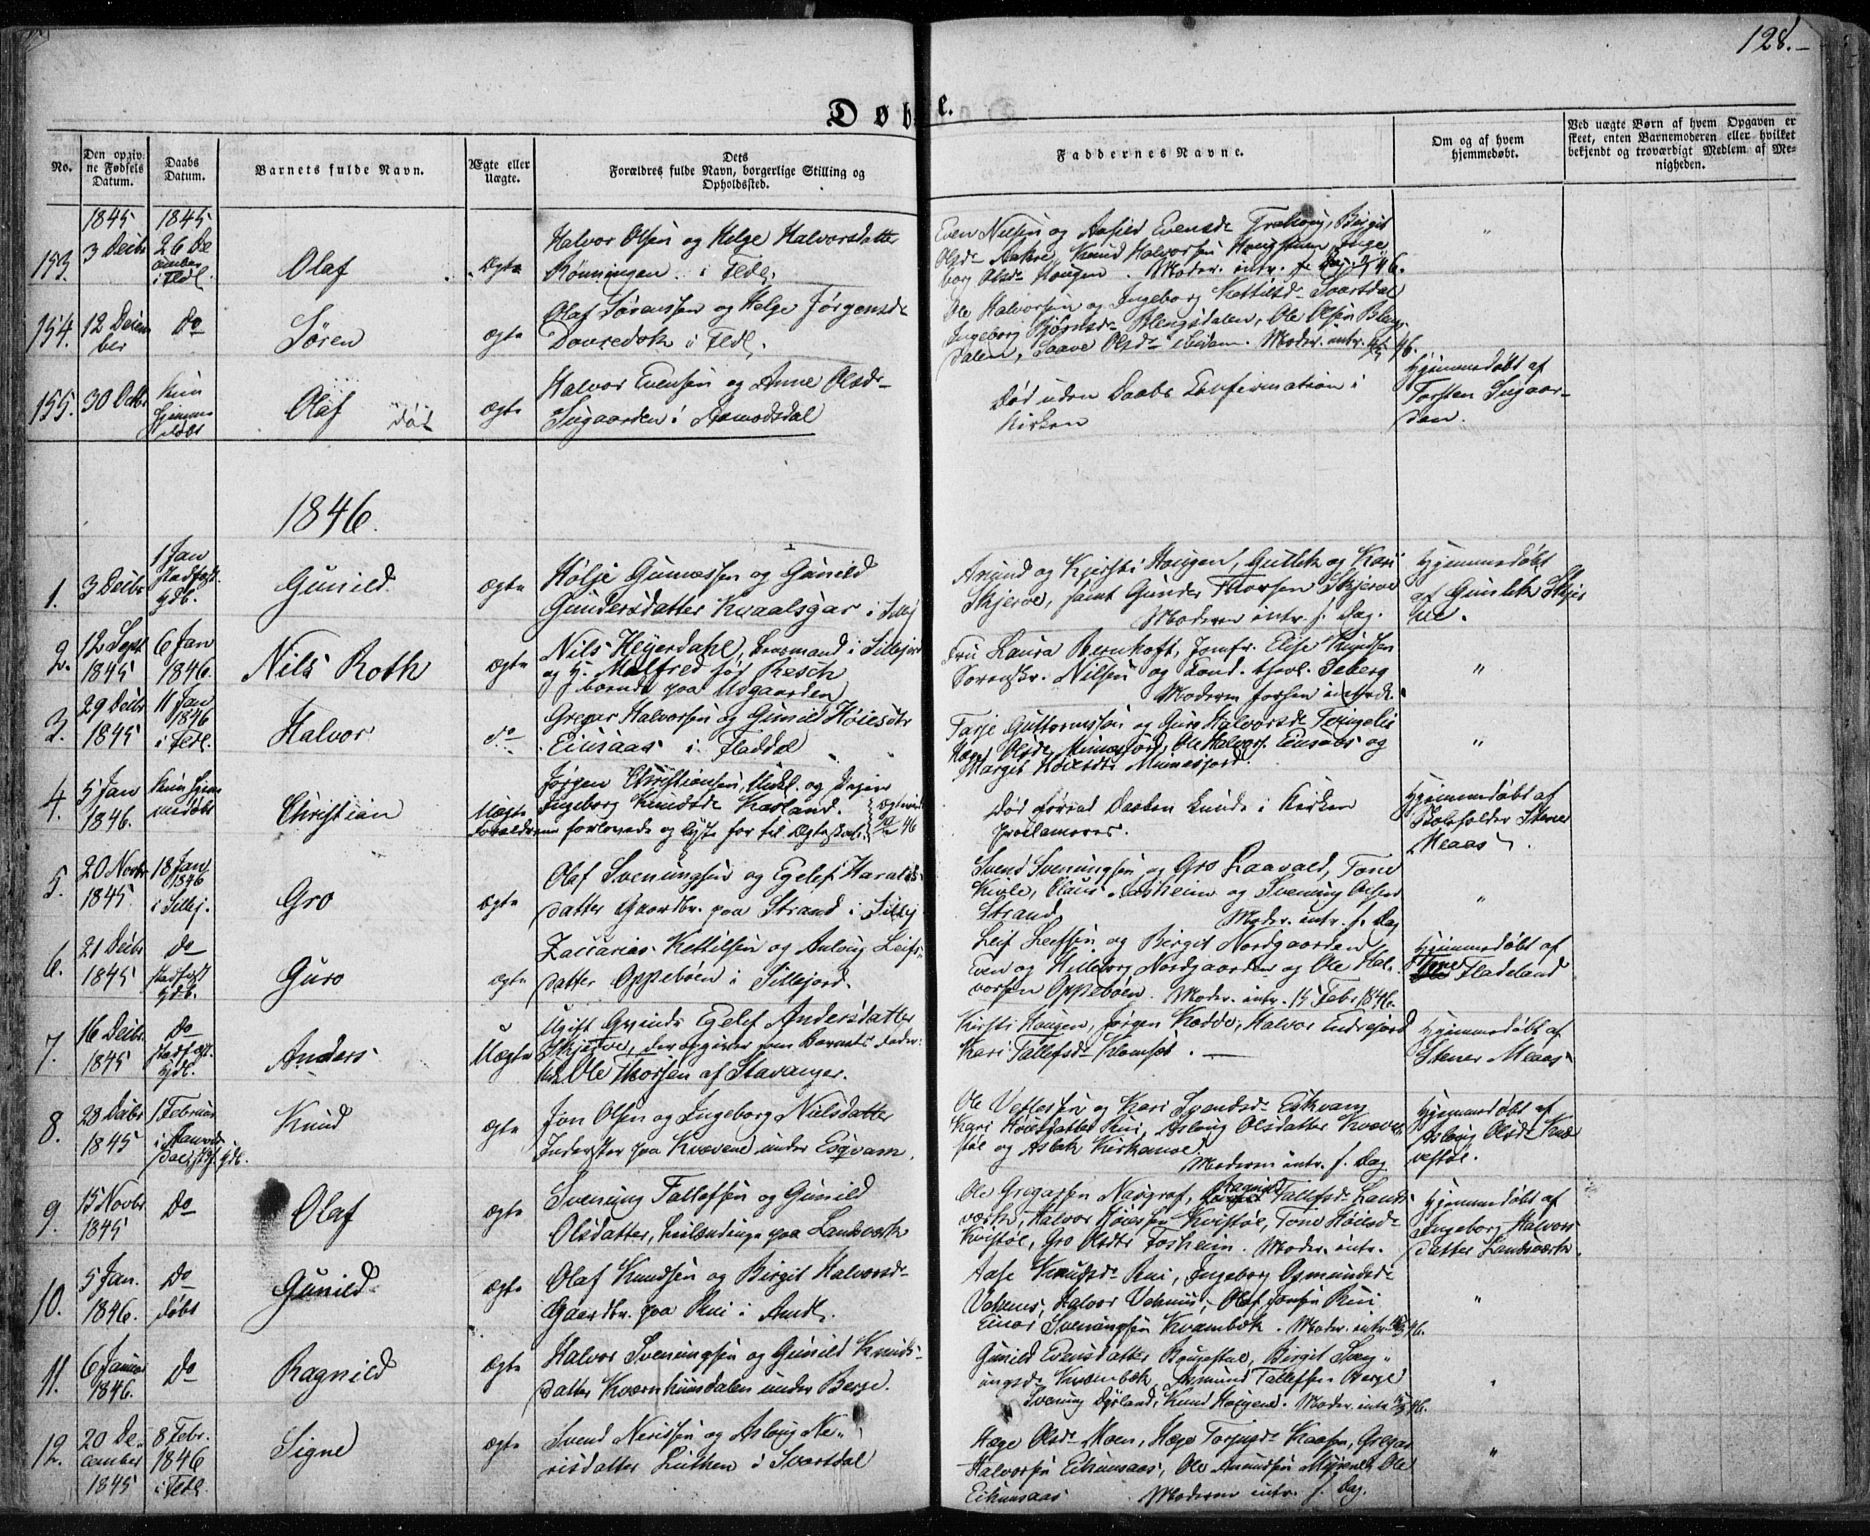 128.
Døbte.
No.
Den opgivne Fødsels Datum.
Daabs Datum.
Barnets fulde Navn.
Ægte eller Uægte.
Dets Forældres fulde Navn, borgerlige Stilling og Opholdssted.
Faddernes Navne.
Om og af hvem hjemmedøbt.
Ved uægte Børn af hvem Opgaven er skeet, enten Barnemoderen eller hvilket bekjendt og troværdigt Medlem af Menigheden.
1845 1845
153. 3 Decbr 26 December i Fldl.
Olaf
Ægte
Halvor Olsen og Helge Halvorsdatter
Rønningen i Fldl.
Even Nilsen og Aasild Evensd Birgit
Olsd Aakre, Knud Halvorsen Haugtuun, Inge
borg Olsd Haugen. Moder. intr. 46.
"
154. 12 December
do
Søren
ægte
Olaf Sørensen og Helge Jørgensd
i Fldl.
Ole Halvorsen og Ingeborg Kettilsd Svartdal
Ingeborg Bjørnsd Blengsdalen, Ole Olsen Bleng-
dalen, Saave Olsd ibidem. Moder. intr. 46.
155. 30 Octbr
kun hjemmedøbt
Olaf død
ægte
Halvor Evensen og Anne Olsd
Sugaarden i Aamodsdal
Død uden Daabs Confirmation i
Kirken
Hjemmedøbt af
Torsten Sugaar-
den.
1846.
1. 3 Decbr
1 Jan
stadfest.
hjdb.
Gunild
ægte
Hølje Gunnessen og Gunild
Gundersdatter Kvaalsgar i Sillej
Amund og Kjersti Haugen, Gutlek og Kari
Skjerve, samt Gunder Thorsen Skjerve
Moderen intr. s. Dag.
Hjemmedøbt
af Gunlek Skjer
ve.
2. 12 Sept 1845
6 Jan 1846.
Nils Roth
ægte
Nils Heyerdahl, Lensmand i Sillejord
og H. Malfred født Resch
boende paa Uvgaarden
Fru Laura Bernhoft, Jomfr. Elise Knudsen
Sorenskr. Nilsen og Cand. theol. Seberg
Moderen forhen introd.
"
3. 29 Decbr 1845
11 Jan 1846 i Fldl.
Halvor
do
Gregar Halvorsen og Gunild Høiesdtr
Einsaas i Fladdal
Tarje Guttormsen og Guro Halvorsd
Olsd Minnesjord, Ole Halvors. Einsaas og
Margit Høiesdtr Minnesjord.
"
4. 5 Jan 1846.
kun hjem
medøbt
Christian
Uægte
Jørgen Christiansen, Unkl. og Pigen
Ingeborg Knudsd Kasland.
Forældrene forlovede og lyste for til Ægteskab. Ægteviede 46
Død forend Daaben kunde i Kirken
proclameres.
Hjemmedøbt af
Skoleholder Stener
Meaas.
5. 20 Novbr 1845
18 Jan 1846
i Sillej.
Gro
ægte
Olaf Sveningsen og Egelef Haralds-
datter Gaardbr. paa Strand i Sillej
Svend Sveningsen og Gro Laavald, Tone
Kivle, Claus Aasheim og Svening Olsen
Strand Moder. intr. s. Dag
"
6. 21 Decbr 1845
do
stadfest
hjdb.
Guro
ægte
Zaccarias Kettilsen og Aaslaug Leifs-
datter Oppebøen i Sillejord.
Leif Leifsen og Birgit Nordgaarden
Even og Helleborg Nordgaarden og Ole Hal-
vorsen Oppebøen. Moder. intr. 15 Febr 1846.
Hjemmedøbt af
Fladeland
7. 16 Decbr 1845
do
stadfest.
hjdb.
Anders
Uægte
Ugift Qvinde Egelef Andersdatter
Skjerve, der opgiver som Barnets Fader
Ole Thorsen af Stavanger.
Kirsti Haugen, Jørgen Kodde, Halvor Endresjord
Kari Tallefsd Klomset.
Hjemmedøbt af
Stener Meaas
8. 28 Decbr 1845
1 Februar
i Aamods
dal, st.f. hjdb.
Knud
ægte
Jon Olsen og Ingeborg Nielsdatter
Inderster paa Kvævene under Esqvam.
Ole Vetlesen og Kari Svendsd Eskvam
Kari Høiesdatter Rui, Aslaug Olsdatter Kvæve
støl og Aslak Kirkamoe.
Moderen intr. s. Dag
Hjemmedøbt af
Aslaug Olsd Kvæ
vestøl.
9. 15 Novbr 1845
do
Olaf
ægte
Svening Tallefsen og Gunild
Olsdatter, huslændinge paa Landsværk
Ole Gregarsen Nasgraf, Ragnild Tallefsd Lands-
værk, Halvor Høiesen Kvistøl, Tone Høiesd
Kvistøl, Gro Olsdtr Forheim. Moder. intr.
Hjemmedøbt af
Ingeborg Halvors-
datter Landsværk.
10. 5 Jan. 1846.
do
døbt
Gunild
ægte
Olaf Knudsen og Birgit Halvorsd
Gaardbr. paa Rui i Amdl.
Aase Knudsd Rui, Ingeborg Osmundsd
Vehuus, Halvor Vehuus, Olaf Jonsen Rui
Einar Sveningsen Kvambek. Moder. intr. 46.
"
11. 6 Januar 1846.
do
Ragnild
ægte
Halvor Sveningsen og Gunild Knuds-
datter Kværnhuusdalen under Berge.
Gunild Evensdatter Bougestul, Birgit Sven-
ingsd Kvambæk, Asmund Tallefsen Berge
Svening Dyrland, Knud Haugene. Moder. intr. 46.
"
12. 20 December 1845
8 Febr. 1846 i Fldl.
Signe
ægte
Svend Neridsen og Aslaug Ne-
risdatter Luthen i Svartdal
Hæge Olsd Moen, Hæge Torjusd Kaasen, Gregar
Halvorsen Eikunsaas, Ole Amundsen Myrene, Ole
Eikunsaas. Moderen intr. s. Dag.
"